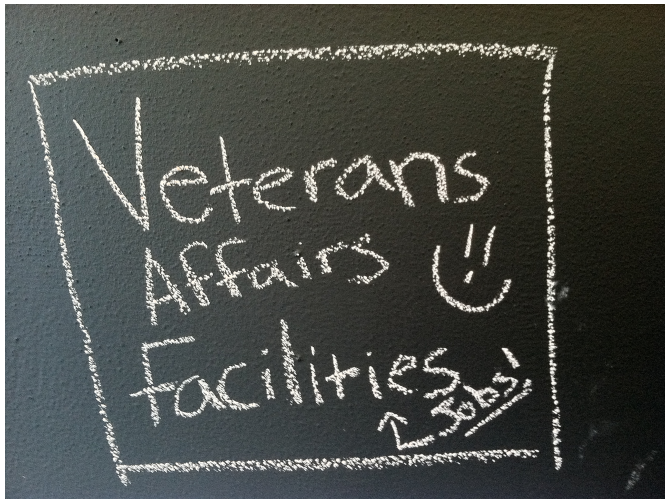 Veterans
Affairs
Facilities
Jobs!